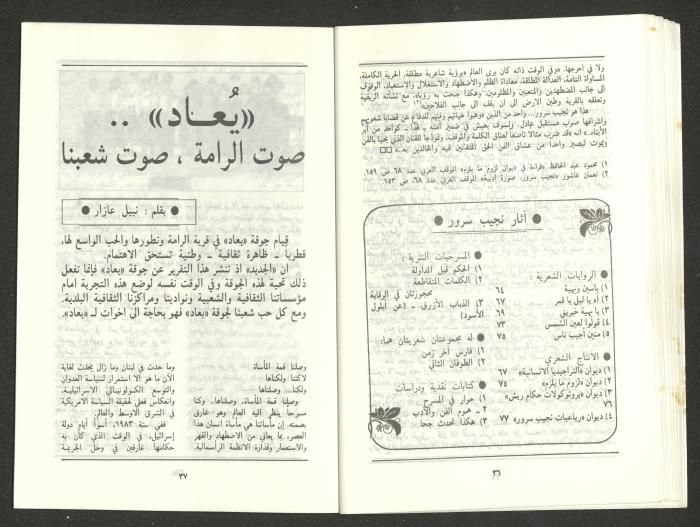 ولا في أحرجها. «وفي الوقت ذاته كان يرى العالم «برؤية شاعرية مطلقة، الحرية الكاملة،
المساواة التامة، العدالة المطلقة، معاداة الظلم والاضطهاد والاستغلال والاستعباد، الوقوف
الى جانب المضطهدين والمتعبين والمظلومين» وهكذا جنحت به رؤياه، مع نشأته الريفية
وتعلقه بالقرية وطين الارض الى ان يقف الى جانب الفلاحين»(٢)
هذا هو نجيب سرور... واحد من الذين «وهبوا حياتهم وفنهم للدفاع عن قضايا شعوبهم
واشرافها صوب مستقبل عادل. ولسوف يعيش في ضمير أمته ـ هذا ـ كواحد من أبر
الأبناء.» انه «قد ضرب مثالا ناصعا لعشاق الكلمة والموقف، ونموذجا للفنان الذي يحيا بالفن
ويموت ليصير واحدا من عشاق الفن الحق المتفانين فيه والخالدين به..»
١) محمود عبد الحافظ «قراءة في ديوان لزوم ما يلزم» الموقف العربي عدد ٦٨ ص ١٥٩.
٢) نعمان عاشور «نجيب سرور، صورة أدبية» الموقف العربي عدد ٦٨ ص ١٥٣.
● آثار نجيب سرور ●
● الروايات الشعرية :
١) ياسين وبهية ٦٤
٢) آه يا ليل يا قمر ٦٧
٣) يا بهية خبريني ٦٩
٤) قولوا لعين الشمس ٧٣
٥) منين أجيب ناس ٧٥
● الانتاج الشعري
١) ديوان «التراجيديا الانسانية» ٦٧
٢) ديوان «لزوم ما يلزم» ٧٥
٣) ديوان «بروتوكولات حكام ريش»
٧٦
٤) ديوان «رباعيات نجيب سرور» ٧٧
● المسرحيات النثرية :
١) الحكم قبل المداولة
٢) الكلمات المتقاطعة
٣) الذباب الأزرق ـ (عن أيلول
الأسود)
● له مجموعتان شعريتان هما:
١) فارس آخر زمن
٢) الطوفان الثاني
● كتابات نقدية ودراسات
١) حوار في المسرح
٢ـ هموم الفن والأدب
٣) هكذا تحدث جحا
٣٦
«يُعـاد» ..
صوت الرامة ، صوت شعبنا
● بقلم : نبيل عازار ●
قيام جوقة «يعاد» في قرية الرامة وتطورها والحب الواسع لها،
قطريا ـ ظاهرة ثقافية ـ وطنية تستحق الاهتمام.
ان «الجديد» اذ تنشر هذا التقرير عن جوقة «يعاد» فإنما تفعل
ذلك تحية لهذه الجوقة وفي الوقت نفسه لوضع هذه التجربة امام
مؤسساتنا الثقافية والشعبية ونوادينا ومراكزنا الثقافية البلدية.
ومع كل حب شعبنا لجوقة «يعاد» فهو بحاجة الى اخوات لـ «يعاد».
وصلنا قمة المأساة
لاكتنا ولكناها
ولكنا.. وصلناها
وصلنا قمة المأساة، وصلناها، وكنا
مسرحا ينظر اليه العالم وهو غارق
بصمته. إن مأساتنا هي مأساة انسان هذا
العصر، بما يعاني من الاضطهاد والقهر
والاستعمار وقذارة الانظمة الرأسمالية.
وما حدث في لبنان وما زال يحدث لغاية
الآن ما هو الا استمرار لسياسة العدوان
والتوسع الكولونيالي الاسرائيلية،
وانعكاس فعلي لحقيقة السياسة الامريكية
في الشرق الاوسط والعالم.
ففي سنة ١٩٨٣، أسوأ أيام دولة
إسرائيل، في الوقت الذي كان به
حكامها غارقين في وحل الجريمة
٣٧